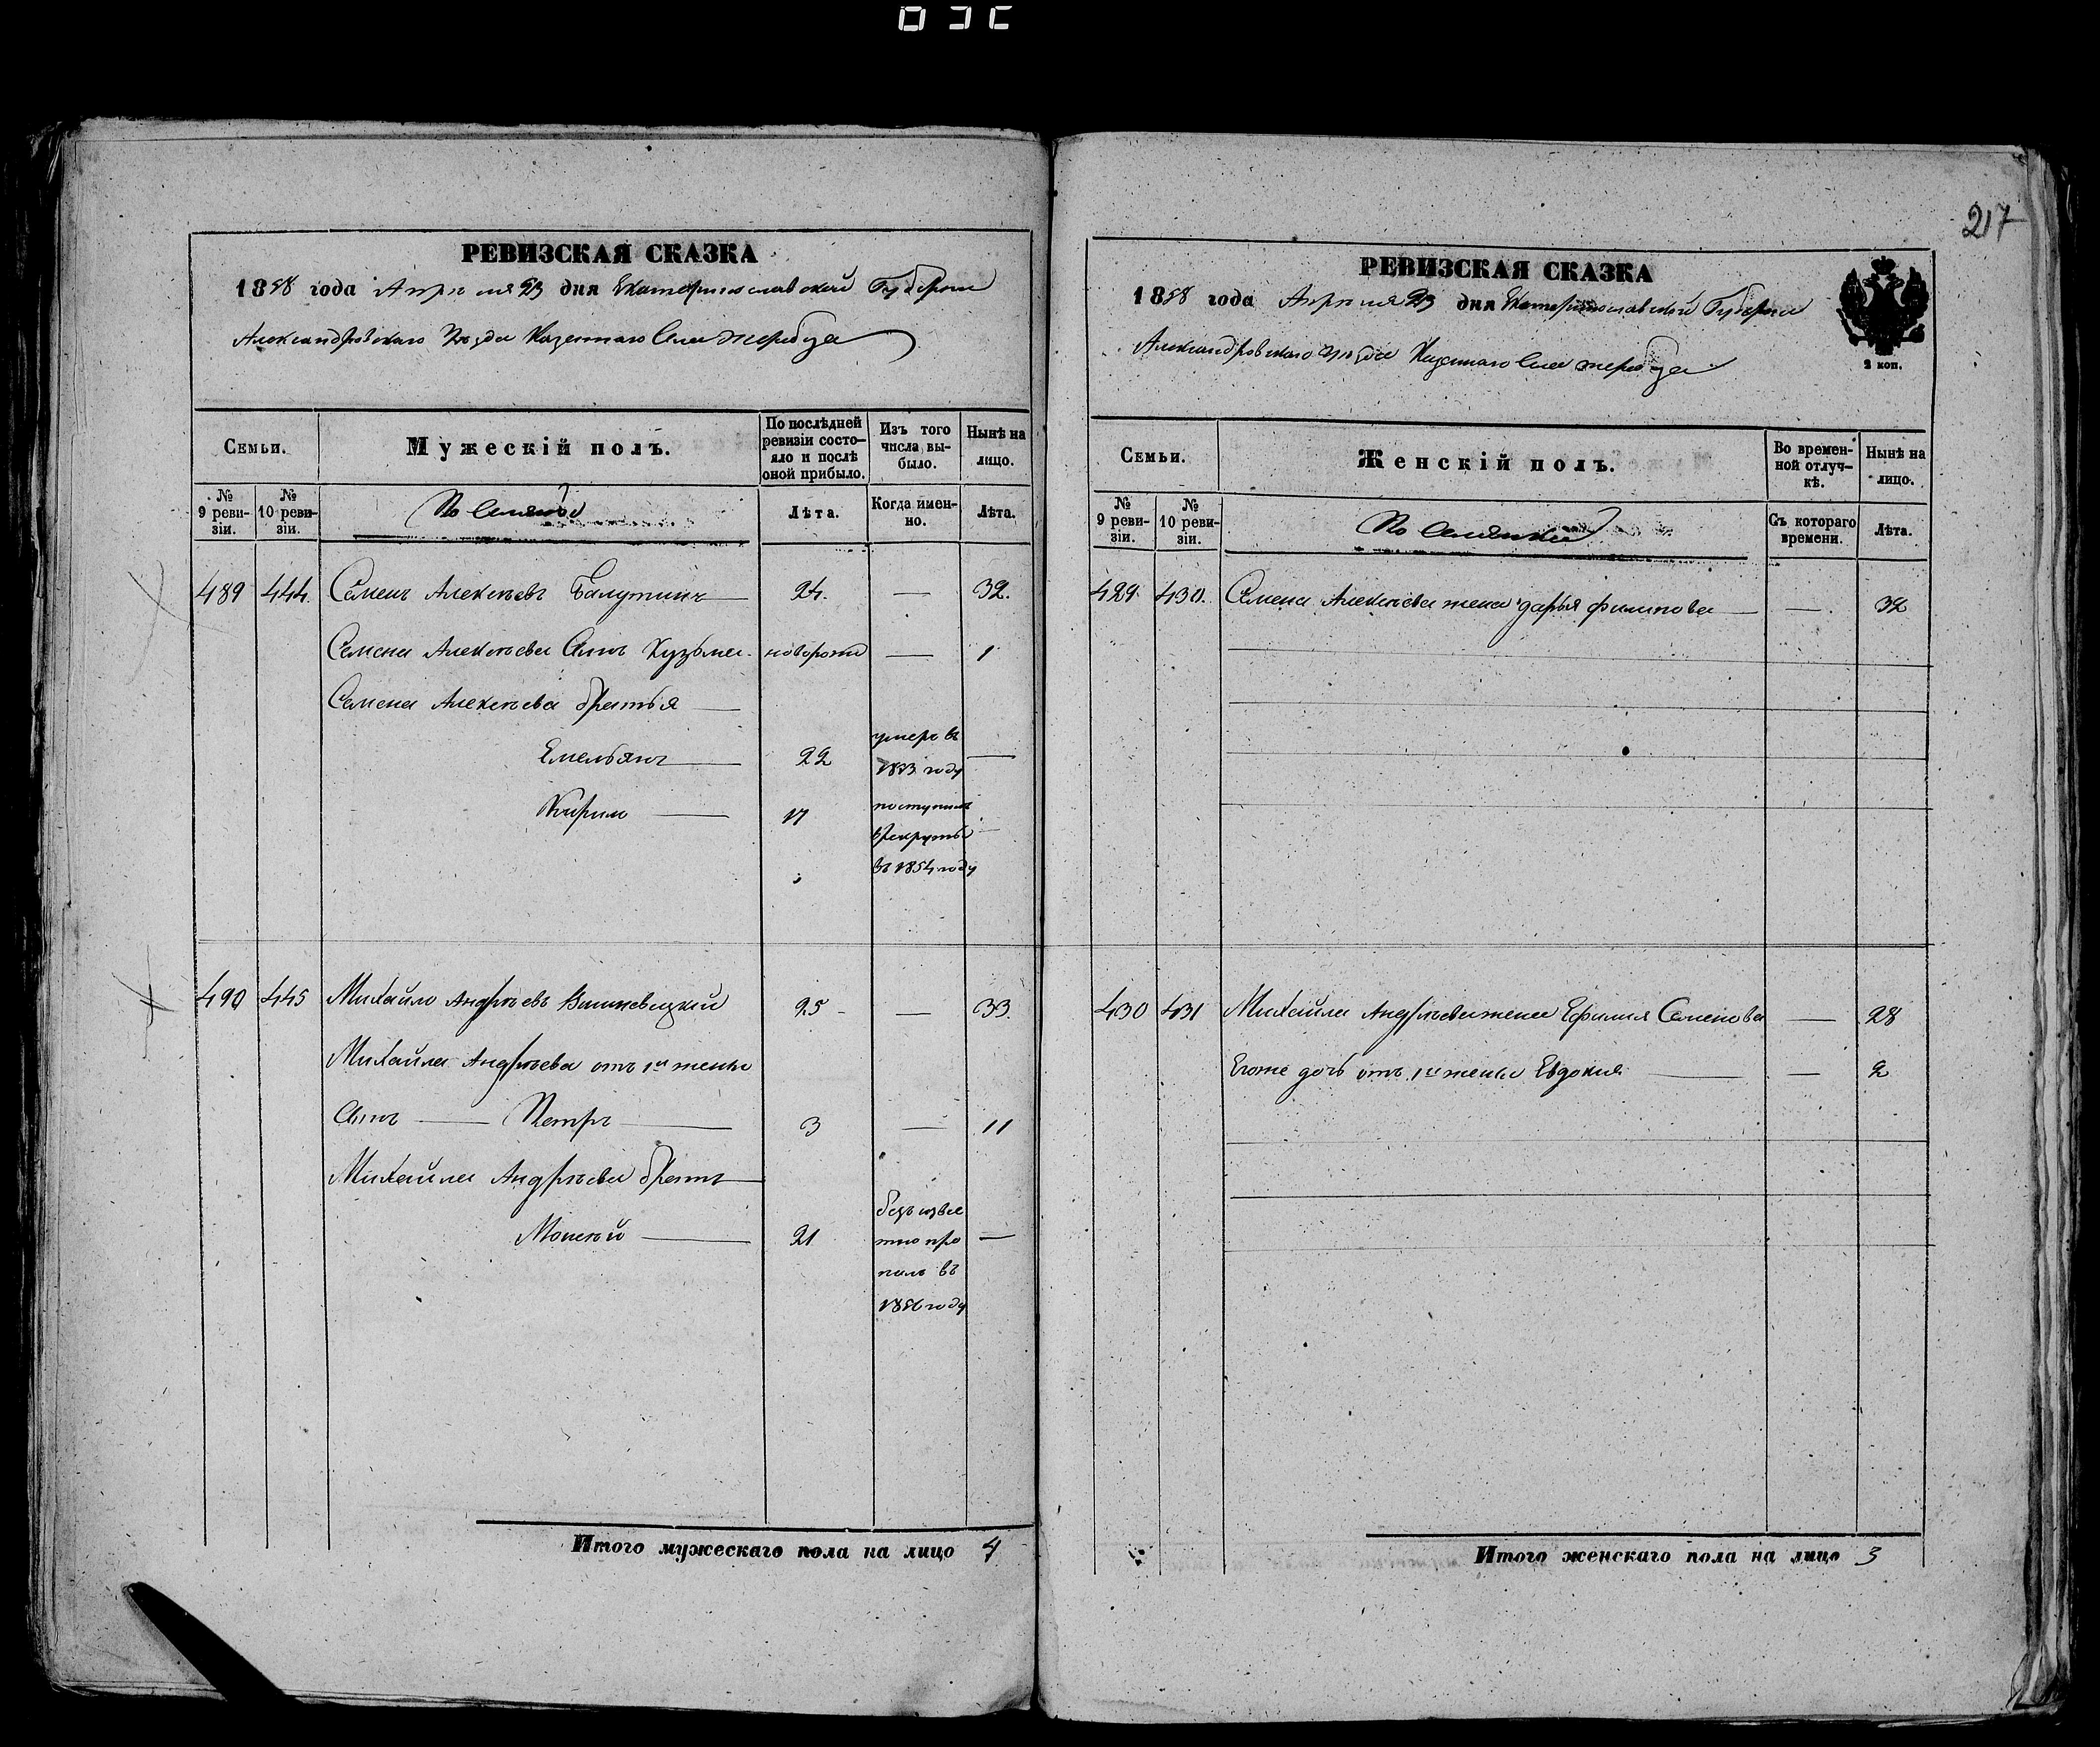 217
РЕВИЗСКАЯ СКАЗКА
1858 года Апреля 23 дня Екатеринославской Губерніи
Александровскаго Уѣзда Казеннаго Села Жеребца
Семьи.
Мужескій полъ.
По послѣдней ревизіи состо-
яло и послѣ
оной прибыло.
Изъ того
числа вы-
было.
Нынѣ на
лицо.
№
9 реви-
зіи.
№
10 реви-
зіи.
Лѣта.
Когда имен-
но.
Лѣта.
489 444. Семенъ Алексѣевъ 24. — 32.
Семена Алексѣева Сынъ Кузьма новорожд — 1
Семена Алексѣева братья —
Емельянъ — 22 умеръ въ
1853 году —
Кирило — 17 поступилъ
в рекруты —
въ 1854 году
490 445 Михайло Андрѣевъ Вишневецкій 25 — 33.
Михайла Андрѣева отъ 1й жены
Сынъ — Петръ — 3 — 11
Михайла Андрѣева братъ —
Моисей — 21 безъ извѣс
тно про —
палъ въ
1856 году
Итого мужескаго пола на лицо 4
РЕВИЗСКАЯ СКАЗКА
1858 года Апреля 23 дня Екатеринославской Губерніи
Александровскаго Уѣзда Казеннаго Села Жеребца
2 коп.
Семьи.
Женскій полъ.
Во времен-
ной отлуч-
кѣ.
Нынѣ на
лицо.
№
9 реви-
зіи.
№
10 реви-
зіи.
Съ котораго
времени.
Лѣта.
429 430. Семена Алексѣева жена Дарья Филипова — — 32
430 431 Михайла Андрѣева жена Ефимия Семенова — 28
Егоже дочь отъ 1й жены Евдокия — — 2
Итого женскаго пола на лицо 3